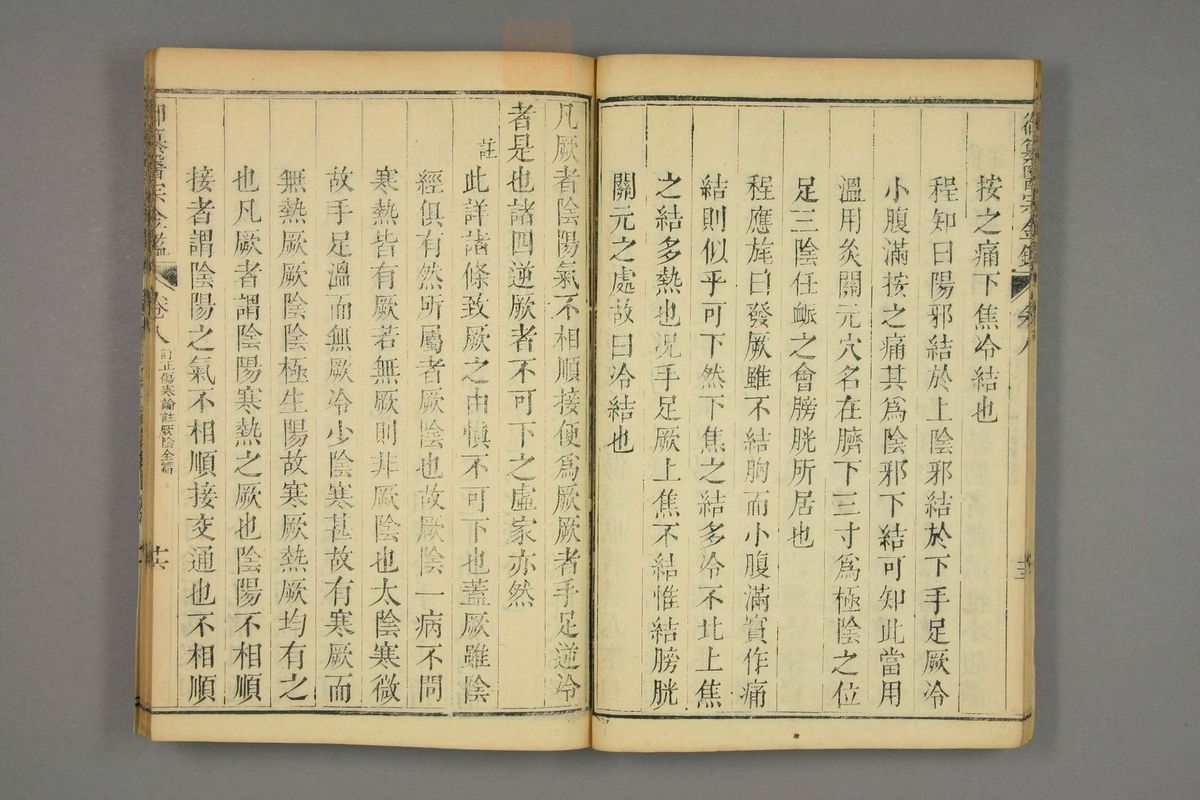 御纂醫宗金鑑
卷八
按之痛下焦冷結也
程知曰陽邪結於上陰邪結於下手足厥冷
小腹滿按之痛其爲陰邪下結可知此當用
溫用灸關元穴名在臍下三寸爲極陰之位
足三陰任脈之會膀胱所居也
程應旄曰發厥雖不結胸而小腹滿實作痛
結則似乎可下然下焦之結多冷不比上焦
之結多熱也况手足厥上焦不結惟結膀胱
關元之處故曰冷結也
凡厥者陰陽氣不相順接便爲厥厥者手足逆冷
者是也諸四逆厥者不可下之虛家亦然
註
此詳諸條致厥之由慎不可下也蓋厥雖陰
經俱有然所屬者厥陰也故厥陰一病不問
寒熱皆有厥若無厥則非厥陰也太陰寒微
故手足溫而無厥冷少陰寒甚故有寒厥而
無熱厥厥陰陰極生陽故寒厥熱厥均有之
也凡厥者謂陰陽寒熱之厥也陰陽不相順
接者謂陰陽之氣不相順接交通也不相順
御纂醫宗金鑑
卷八
訂正傷寒論註厥陰全篇